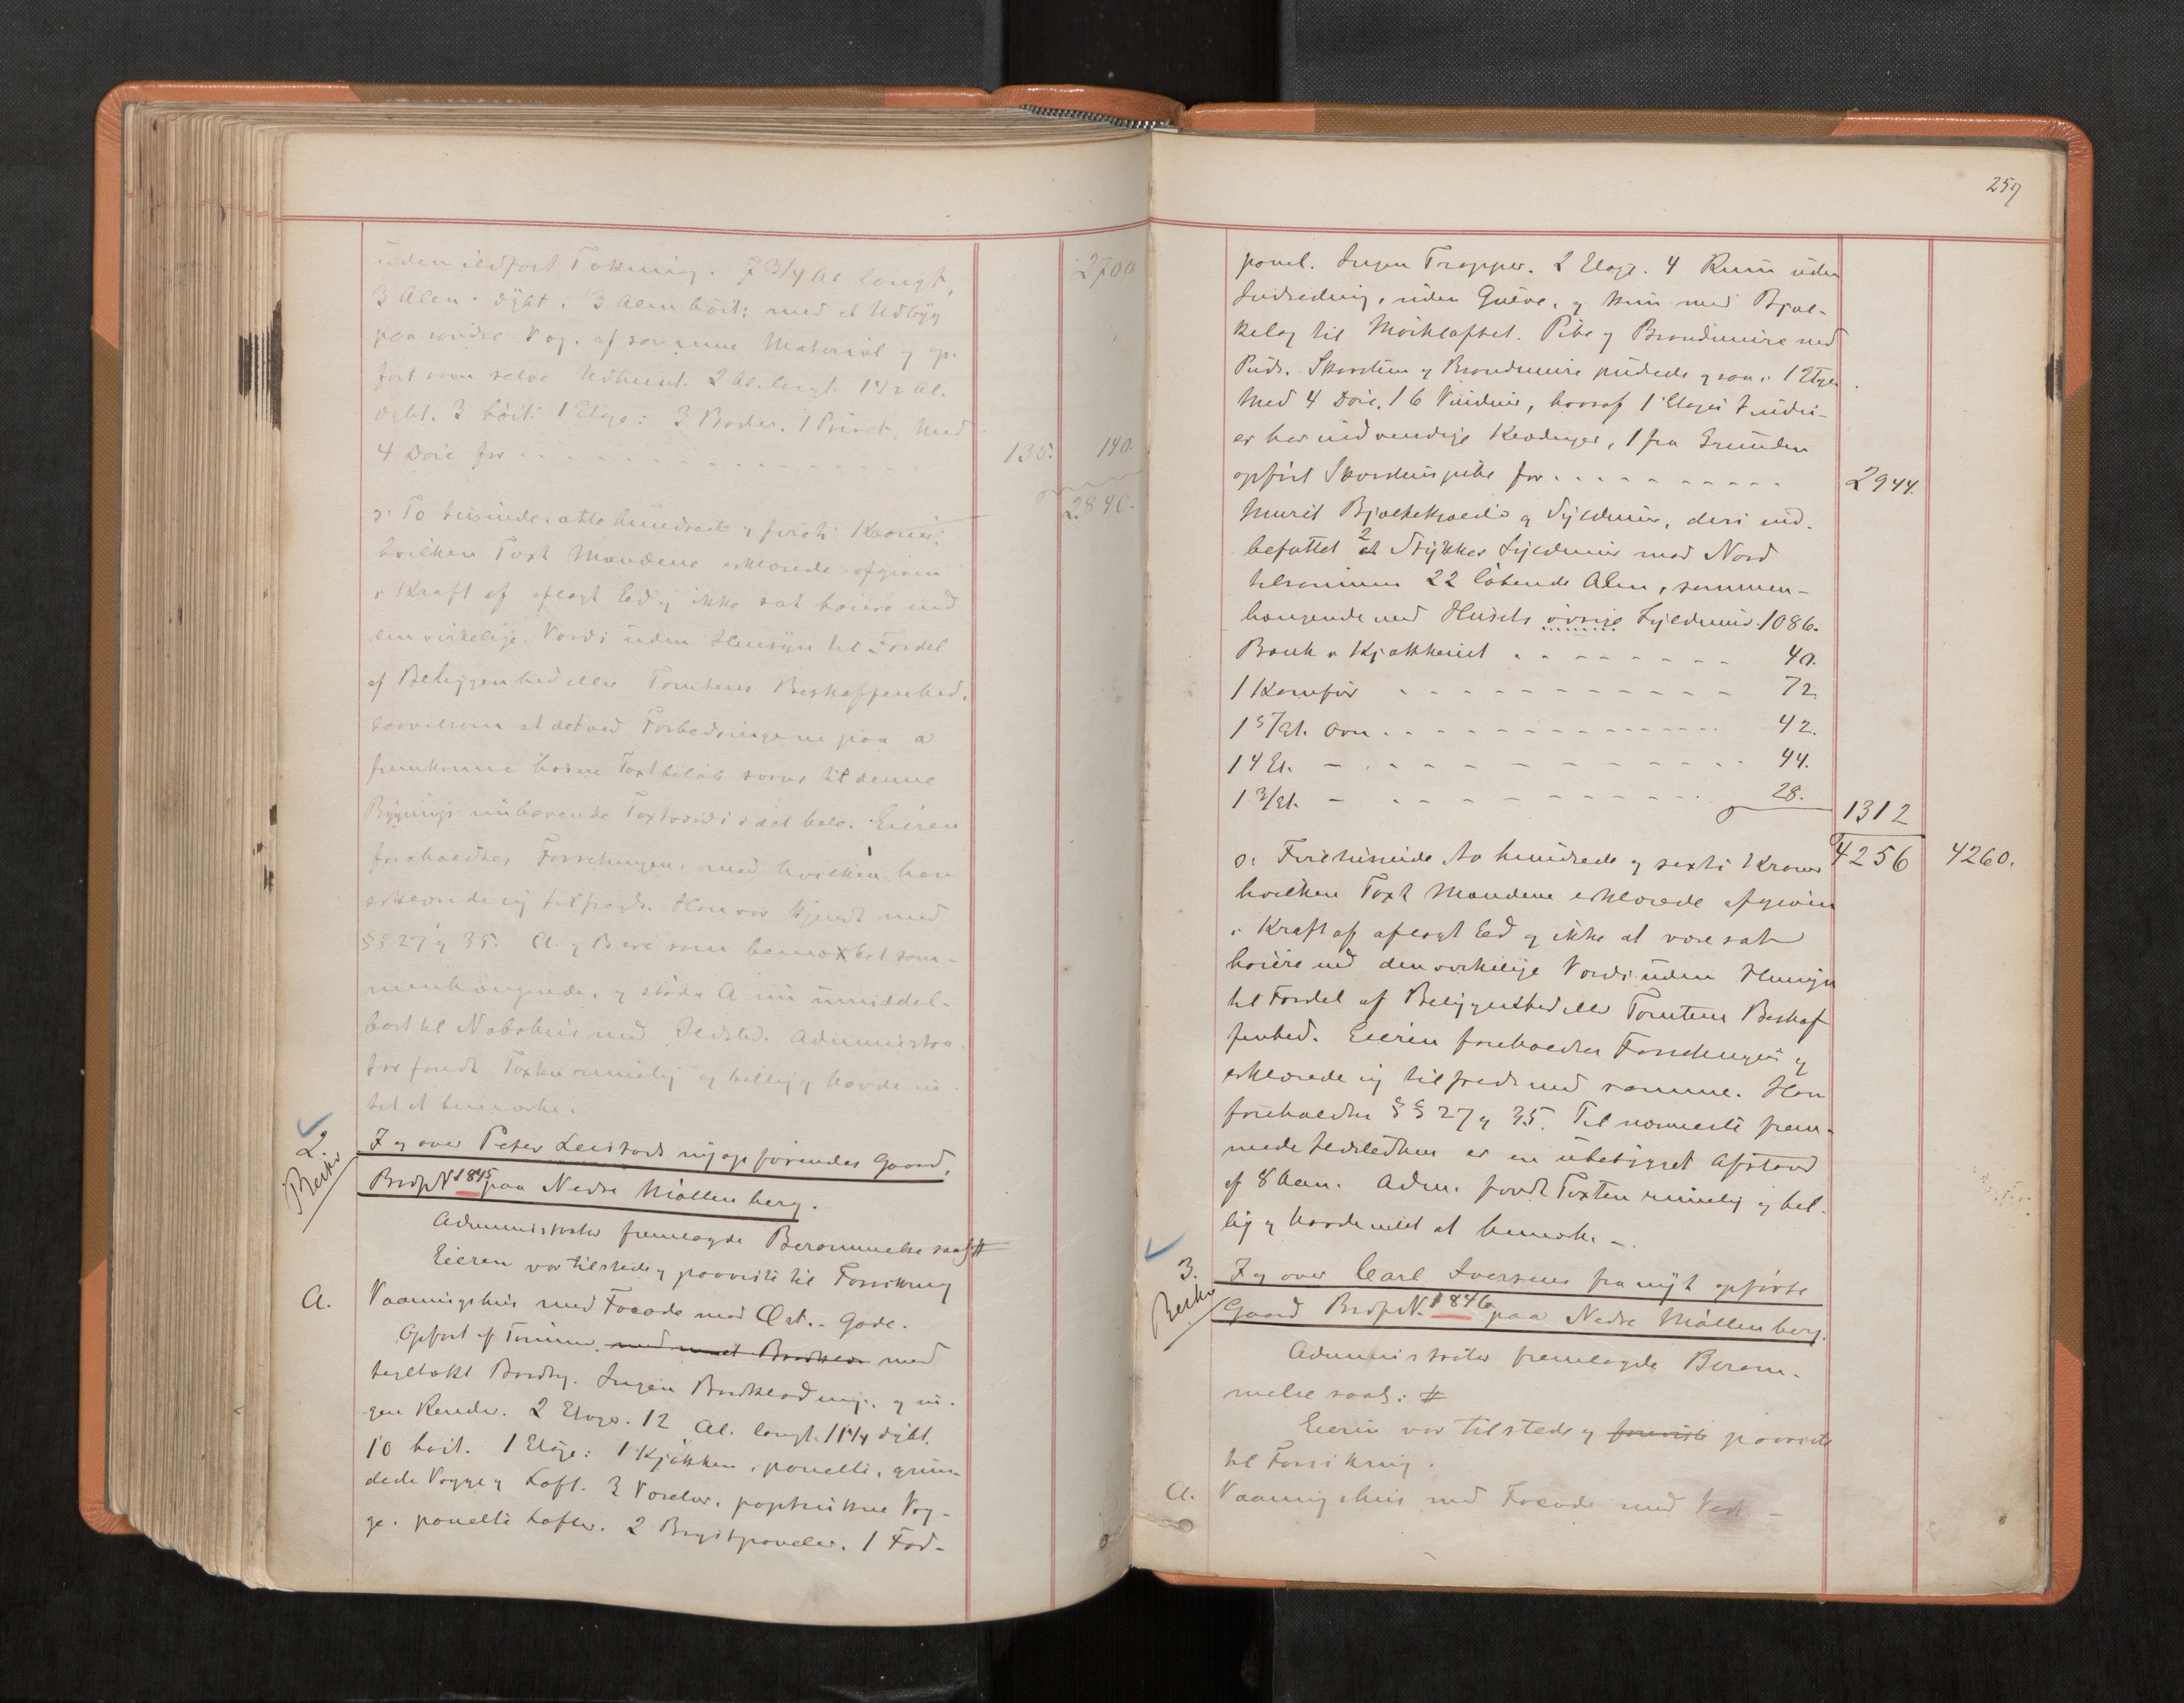 uden ildfast Tækning. 7 3/4 Al. langt, 2700
3 Alen dybt, 3 Alen höit; med et Udbyg
paa söndre Væg, af samme Material og op-
fört som selve Udhuset. 2 Al. langt. 1 1/2 Al.
dybt. 3 höit: 1 Etage: 3 Boder. 1 Privet. Med
4 Döre for 135. 140.
2840.
ɔ: To tusinde, otte hundrede og förti Kroner:
hvilken Taxt Mændene erklærede afgiven
i Kraft af aflagt Ed og ikke sat höiere end
den virkelige Værdi uden Hensyn til Fordel
af Beliggenhed eller Tomtens Beskaffenhed,
saavelsom at det ved Forbedringerne paa A
fremkomne höiere Taxtbelöb svarer til denne
Bygnings nuhavende Taxtværdi i det hele. Eieren
foreholdtes Forsikringen, med hvilken han
erklærede sig tilfreds. Han var kjendt med
§§ 27 og 35. A. og B ere som bemærket sam-
menhængende, og stöder A nu umiddel-
bart til Nabohus med Ildsted. Administra-
tor fandt Taxten rimelig og billig og havde in-
tet at bemærke.
2. I og over Peter Leistads nyopförendes Gaard,
BrdpN 1845 paa Nedre Möllenberg.
Administrator fremlagde Berammelse saal. #
Eieren var tilstede og paaviste til Forsikring
A. Vaaningshus med Facade mod Öst. - Gade.
Opfört af Tömmer, med malt Bordklæ med
tegltækt Bordtag. Ingen Bordklædning, og in-
gen Render. 2 Etager. 12 Al. langt. 11 1/4 dybt.
10 höit. 1 Etage: 1 Kjökken, panelte, grun-
dede Vægge og Loft. 3 Værelser, papstrukne Væg-
ge. panelte Lofter. 2 Brystpaneler. 1 Fod-
259
panel. Ingen Trapper. 2 Etage. 4 Rum uden
Indredning, uden Gulve, og kun med Bjæl-
kelag til Mörkloftet. Pibe og Brandmure med
Puds. Skorsten og Brandmure pudsede ogsaa i 1 Etage.
Med 4 Döre, 16 Vinduer, hvoraf 1 Etages Vindu-
er har indvendige Klædninger, 1 fra Grunden
opfört Skorstenspibe for 2944.
Muret Bjælkekjælder og Syldmur, deri ind-
befattet 2 et Stykker Syldmur mod Nord
tilsammen 22 löbende Alen, sammen-
hængende med Husets övrige Syldmur. 1086.
Bænk i Kjökkenet 40.
1 Komfür 72.
1 5/Et. Ovn 42.
1 4 Et. — 44.
1 3/Et. — 28.
1312
4256 4260.
ɔ: Fire tusinde to hundrede og sexti Kroner
hvilken Taxt Mændene erklærede afgiven
i Kraft af aflagt Ed og ikke at være sat
höiere end den virkelige Værdi uden Hensyn
til Fordel af Beliggenhed eller Tomtens Beskaf
fenhed. Eieren foreholdtes Forsikringen og
erklærede sig tilfreds med samme. Han
foreholdtes §§ 27 og 35. Til nærmeste frem-
mede Ildstedhus er en ubebygget Afstand
af 8 Alen. Adm. fandt Taxten rimelig og bil-
lig og havde intet at bemærke —.
3. I og over Carl Iversens fra nyt opförte
Gaard BrdpN. 1846 paa Nedre Möllenberg.
Administrator fremlagde Beram-
melse saal: #
Eieren var tilstede og foreviste paaviste
til Forsikring.
A. Vaaningshus med Facade mod Vest. —